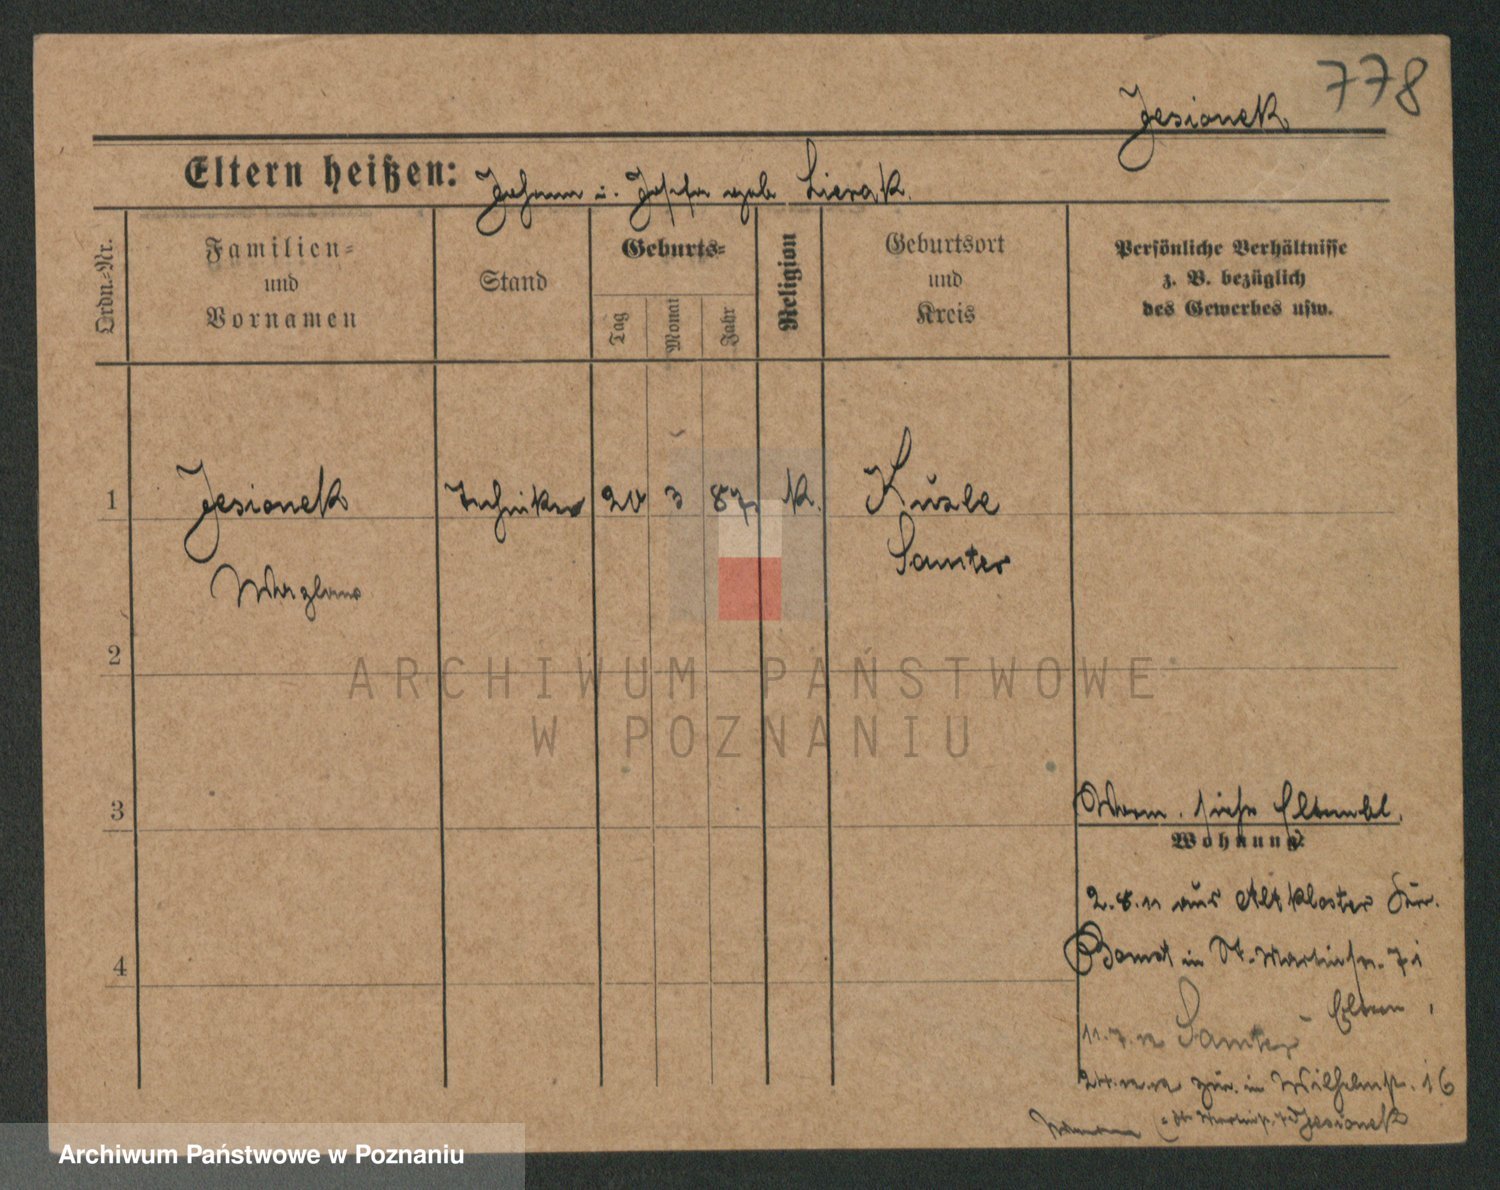 778
Jesionek
Eltern heißen: Johann u. Josefa geb. Lisrak.
Ordn.-Nr.
Familien-
und
Vornamen
Stand
Geburts-
Tag
Monat
Jahr
Religion
Geburtsort
und
Kreis
Persönliche Verhältnisse
z. B. bezüglich
des Gewerbes usw.
1
Jesionek
Techniker
20 3 87
K.
Kusle
Samter
2
3
siehe
Wohnung:
2.8.11 aus Altkloster Kr.
Bomst in St. Martinstr. 71
Eltern
4
11.7.12 Samter
zur. in Wilhelmstr. 16
Jesionek
ARCHIWUM PAŃSTWOWE
W POZNANIU
Archiwum Państwowe w Poznaniu